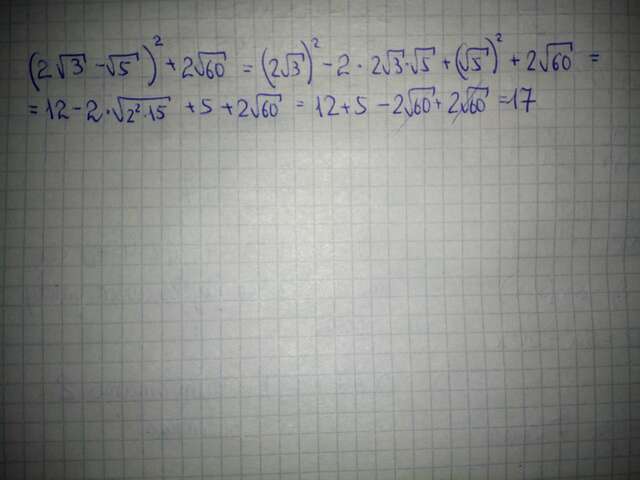 (2√3 - √5)² + 2√60 = (2√3)² - 2 · 2√3·√5 + (√5)² + 2√60 =
= 12 - 2·√2²·15 + 5 + 2√60 = 12 + 5 - 2√60 + 2√60 = 17